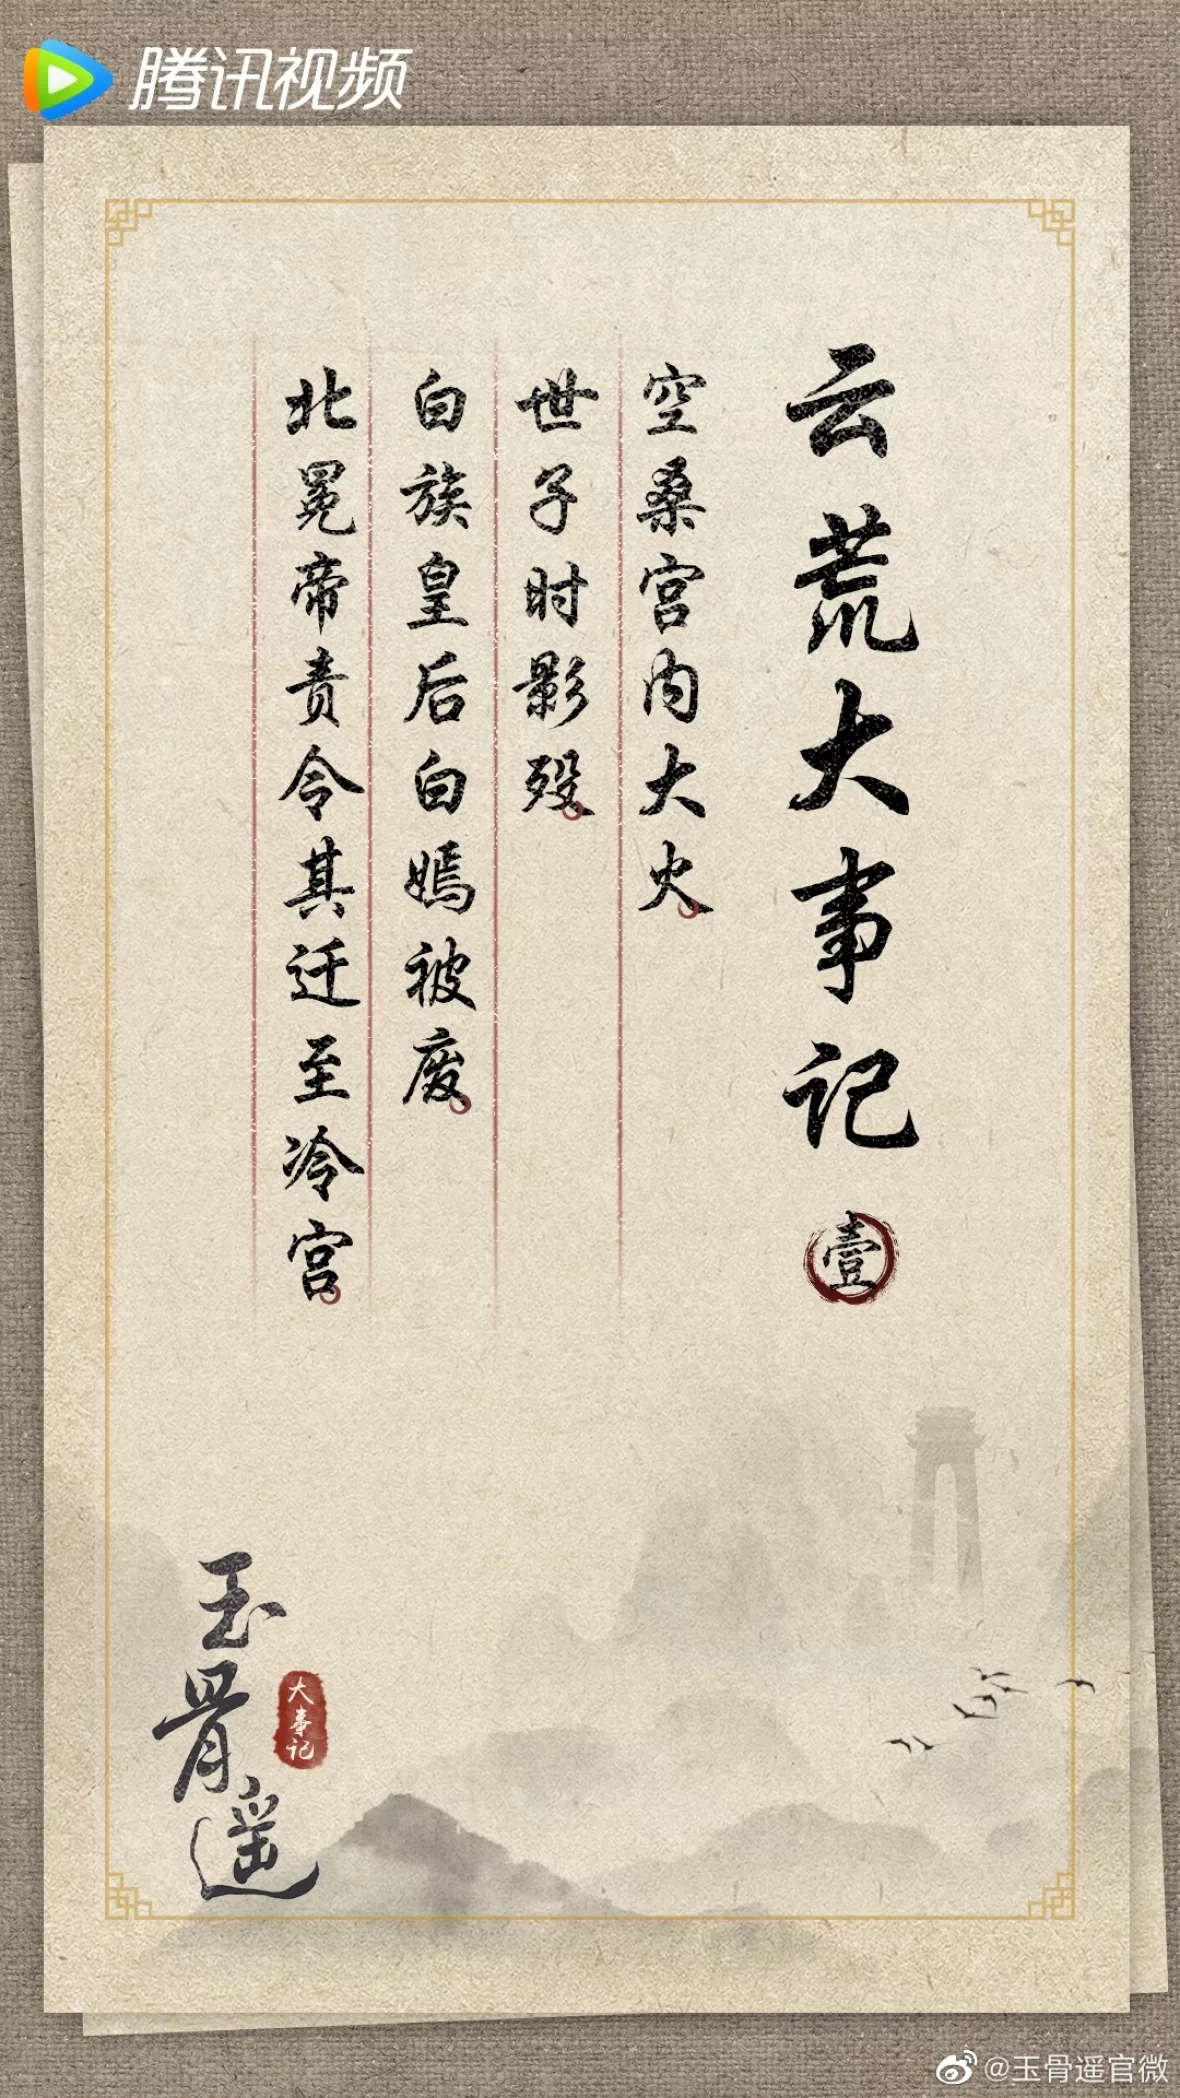 腾讯视频
云荒大事记 壹
空桑宫内大火。
世子时影殁。
白族皇后白嫣被废。
北冕帝责令其迁至冷宫。
玉骨遥
大事记
@玉骨遥官微